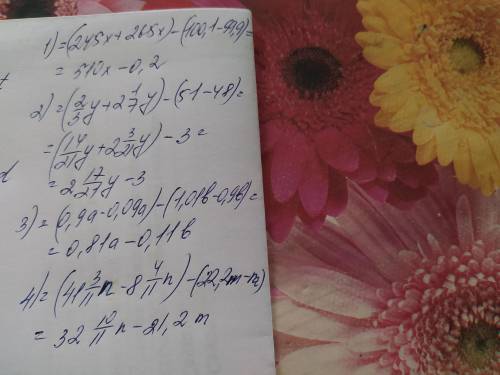 1) =(245x+265x)-(100,1-99,9)=
= 510x-0,2
2) =(2/3y+2 1/7y)-(51-48)=
=(14/21y+2 3/21y)-3=
=2 17/21y-3
3) =(0,9a-0,09a)-(1,01b-0,9b)=
=0,81a-0,11b
4) =(41 3/11n-8 4/11n)-(22,2m-m)
= 32 10/11n-21,2m